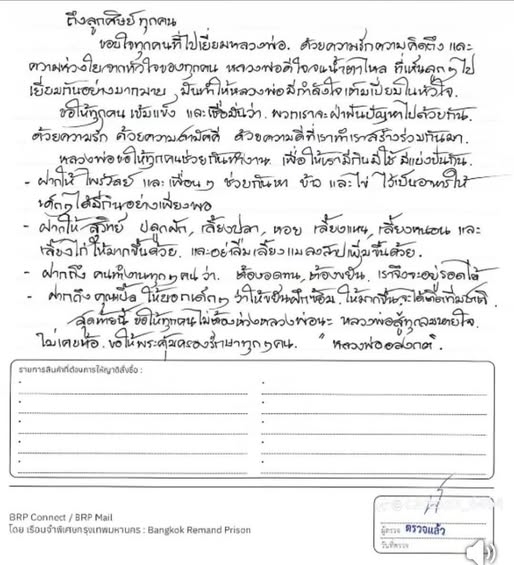 ถึงลูกศิษย์ทุกคน
ขอบใจทุกคนที่ไปเยี่ยมหลวงพ่อ. ด้วยความรักความคิดถึง และ
ความห่วงใยจากหัวใจของทุกคน หลวงพ่อดีใจจนน้ำตาไหล ที่เห็นลูกๆไป
เยี่ยมกันอย่างมากมาย, มันทำให้หลวงพ่อมีกำลังใจเต็มเปี่ยมในหัวใจ.
ขอให้ทุกคน เข้มแข็ง และเชื่อมั่นว่า. พวกเราจะฝ่าฟันปัญหาไปด้วยกัน.
ด้วยความรัก ด้วยความสามัคคี ด้วยความดีที่เราทำเราสร้างร่วมกันมา.
หลวงพ่อขอให้ทุกคนช่วยกันทำงาน เพื่อให้เรามีกินมีใช้ มีแบ่งปันกัน.
- ฝากให้ ไพรวัลย์ และเพื่อนๆ ช่วยกันหา ข้าว และไข่ ไว้เป็นอาหารให้
เด็กๆได้มีกินอย่างเพียงพอ
- ฝากให้ สุวิทย์ ปลูกผัก, เลี้ยงปลา, หอย เลี้ยงแหน, เลี้ยงหนอน และ
เลี้ยงไก่ ให้มากขึ้นด้วย. และอย่าลืมเลี้ยงแมลงสาบเพิ่มขึ้นด้วย.
- ฝากถึง คนทำงานทุกๆคนว่า. ต้องอดทน, ต้องขยัน, เราจึงจะอยู่รอดได้
- ฝากถึงคุณเปิ้ล ให้บอกเด็กๆ ว่าให้ขยันฝึกซ้อม ให้มากขึ้น จะได้ติดทีมชาติ.
สุดท้ายนี้ ขอให้ทุกคนไม่ต้องห่วงหลวงพ่อนะ หลวงพ่อสู้ทุกลมหายใจ.
ไม่เคยท้อ. ขอให้พระคุ้มครองรักษาทุกๆคน. " หลวงพ่ออลงกต".
รายการสินค้าที่ต้องการให้ญาติสั่งซื้อ :
BRP Connect / BRP Mail
โดย เรือนจำพิเศษกรุงเทพมหานคร : Bangkok Remand Prison
ผู้ตรวจ ตรวจแล้ว
วันที่ตรวจ